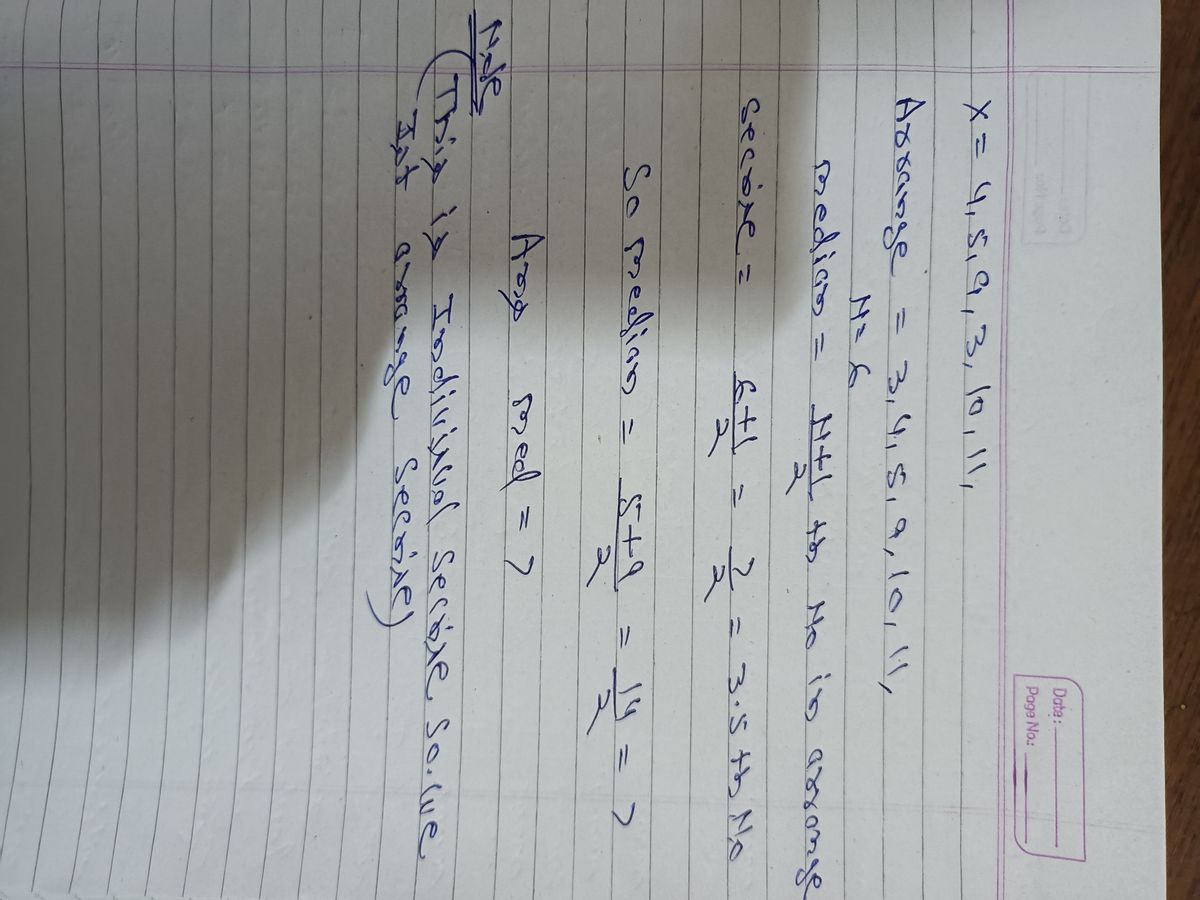 Date:
Page No.:
X = 4, 5, 9, 3, 10, 11,
Arrange = 3, 4, 5, 9, 10, 11,
N = 6
median = N+1/2 th No in arrange
Secrire = 6+1/2 = 7/2 = 3.5 th No
So median = 5+9/2 = 14/2 = 7
Ans med = 7
Note
(This is Indivixual Secrire So. we
Ist arrange Secrire)